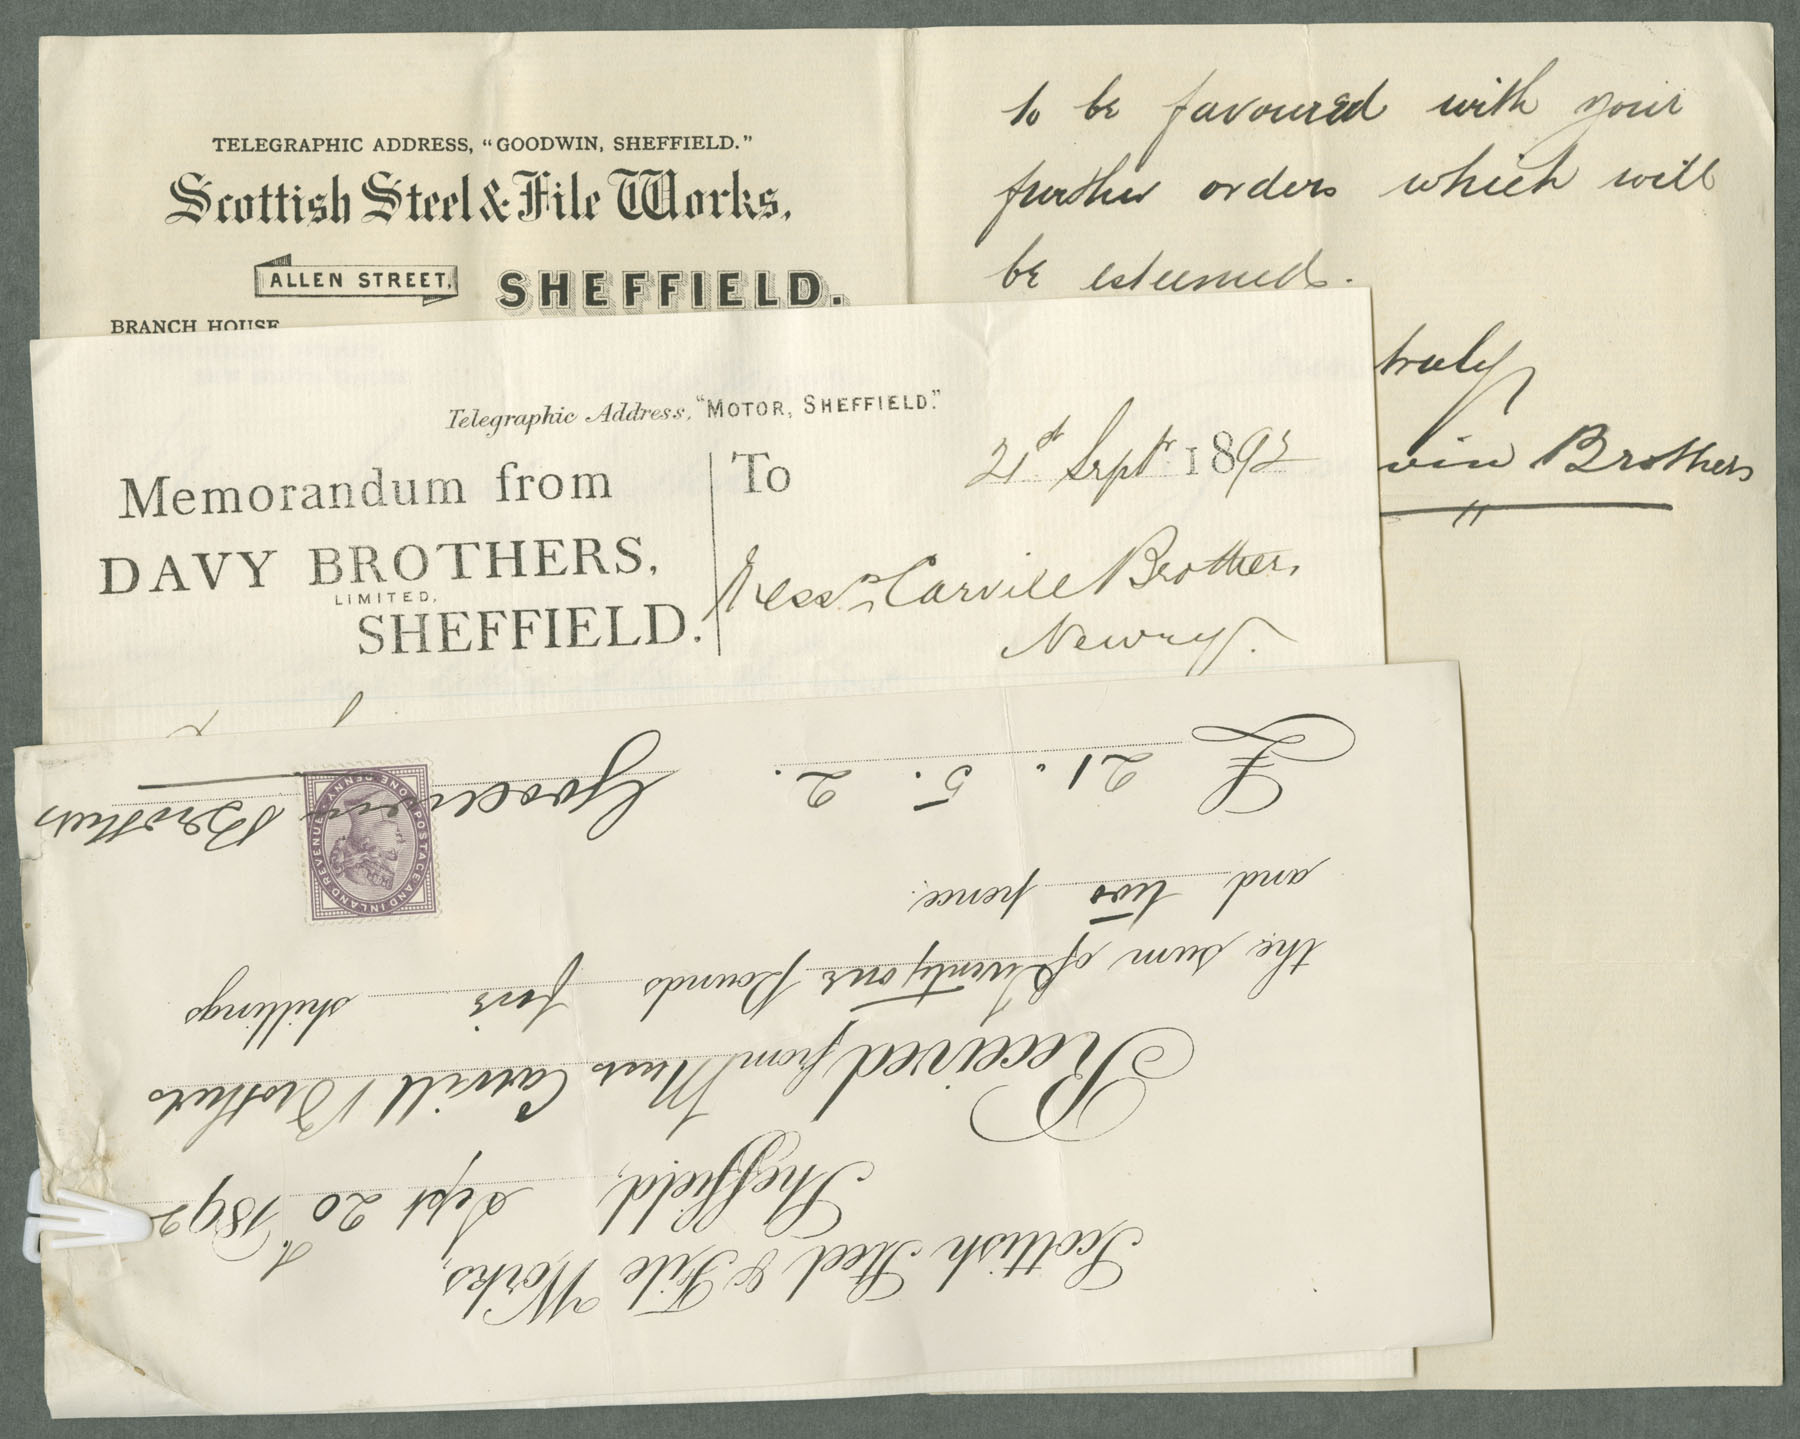 TELEGRAPHIC ADDRESS, "GOODWIN, SHEFFIELD."
Scottish Steel & File Works,
ALLEN STREET, SHEFFIELD.
BRANCH HOUSE
to be favoured with your
further orders which will
be esteemed.
truly
win Brothers
Telegraphic Address, "MOTOR, SHEFFIELD."
Memorandum from
DAVY BROTHERS,
LIMITED,
SHEFFIELD.
To
21st Septr 1892
Messrs Carvill Brothers,
Newry.
Scottish Steel & File Works,
Sheffield, Sept 20th 1892
Received from Messrs Carvill Brothers
the sum of Twenty one Pounds five shillings
and two pence.
£ 21. 5. 2. Goodwin Brothers
POSTAGE AND INLAND REVENUE
ONE PENNY